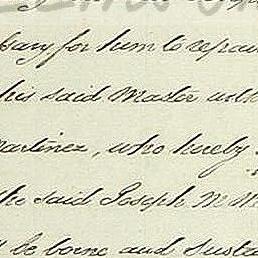 for him to repair
his said Master with
Martinez, who hereby
the said Joseph M
be borne and susta